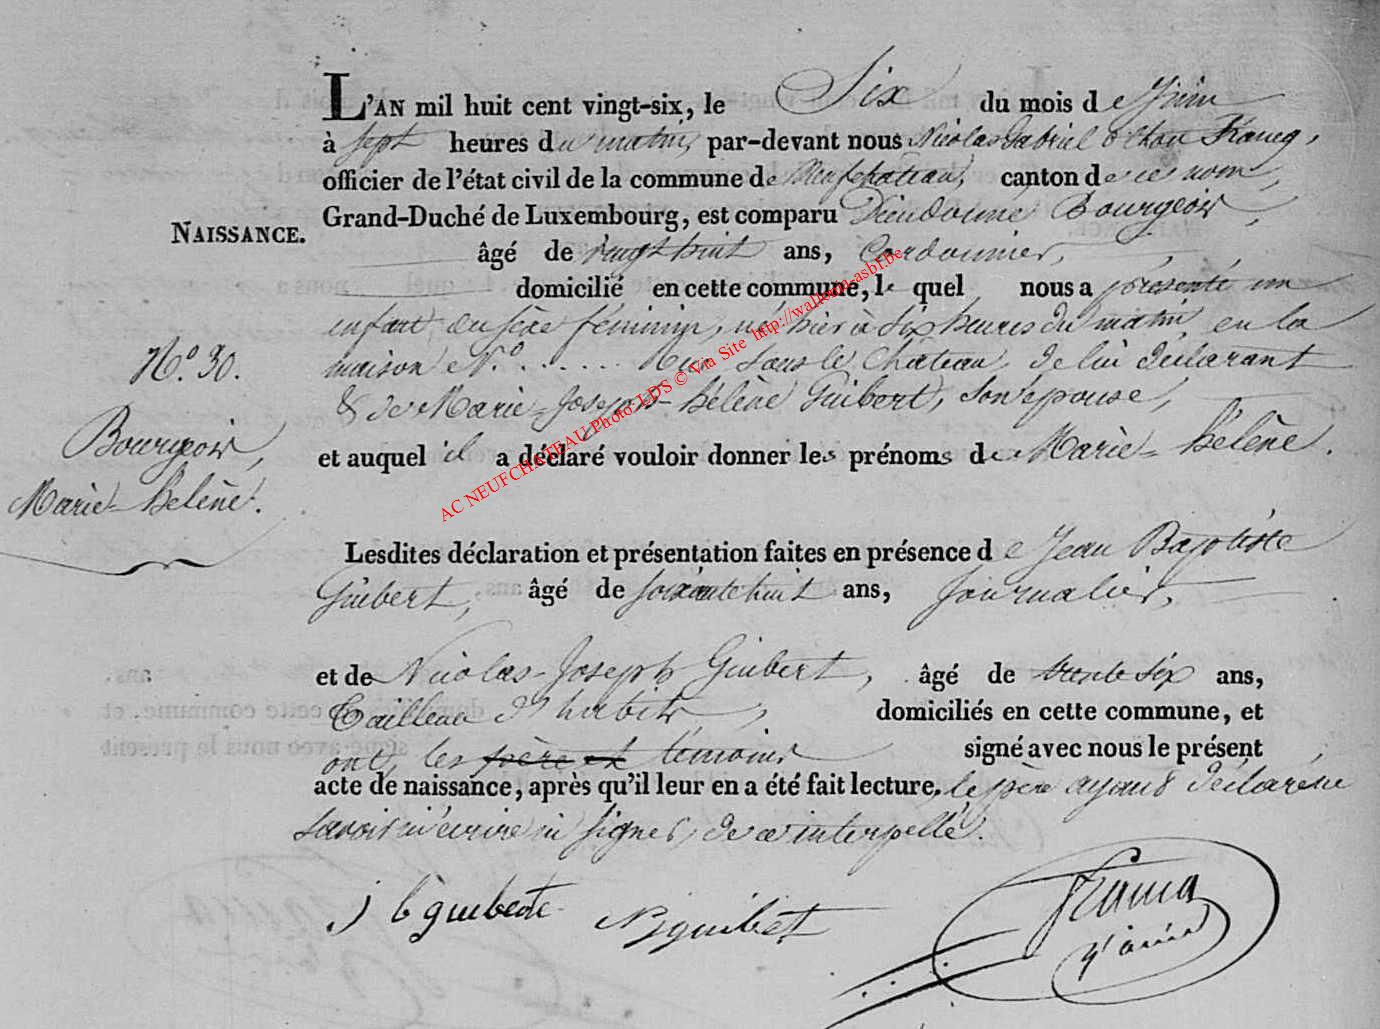 L'AN mil huit cent vingt-six, le Six du mois de Juin
à sept heures du matin, par-devant nous Nicolas Gabriel
officier de l'état civil de la commune de Neufchâteau, canton de ce nom,
Grand-Duché de Luxembourg, est comparu Dieudonné Bourgeois,
NAISSANCE.
âgé de vingt huit ans, Cordonnier,
domicilié en cette commune, le quel nous a présenté un
enfant, du sèxe féminin, né hier à Six heures du matin, en la
maison N.o . . . . . . . Rue Sous le Château, de lui déclarant
N.o 30.
& de Marie-Joseph-hélène Guibert, son épouse,
Bourgeois,
Marie-hélène.
et auquel il a déclaré vouloir donner les prénoms de Marie-hélène.
Lesdites déclaration et présentation faites en présence de Jean Baptiste
Guibert, âgé de soixante huit ans, journalier,
et de Nicolas-Joseph Guibert, âgé de trente Six ans,
Tailleur d'habits, domiciliés en cette commune, et
ont, les père et témoins signé avec nous le présent
acte de naissance, après qu'il leur en a été fait lecture, le père ayant déclaré ne
savoir écrire ni signer, de ce interpellé.
J b guiberte
N J guibert
AC NEUFCHATEAU Photo LDS © Via Site http://wallonia-asbl.be